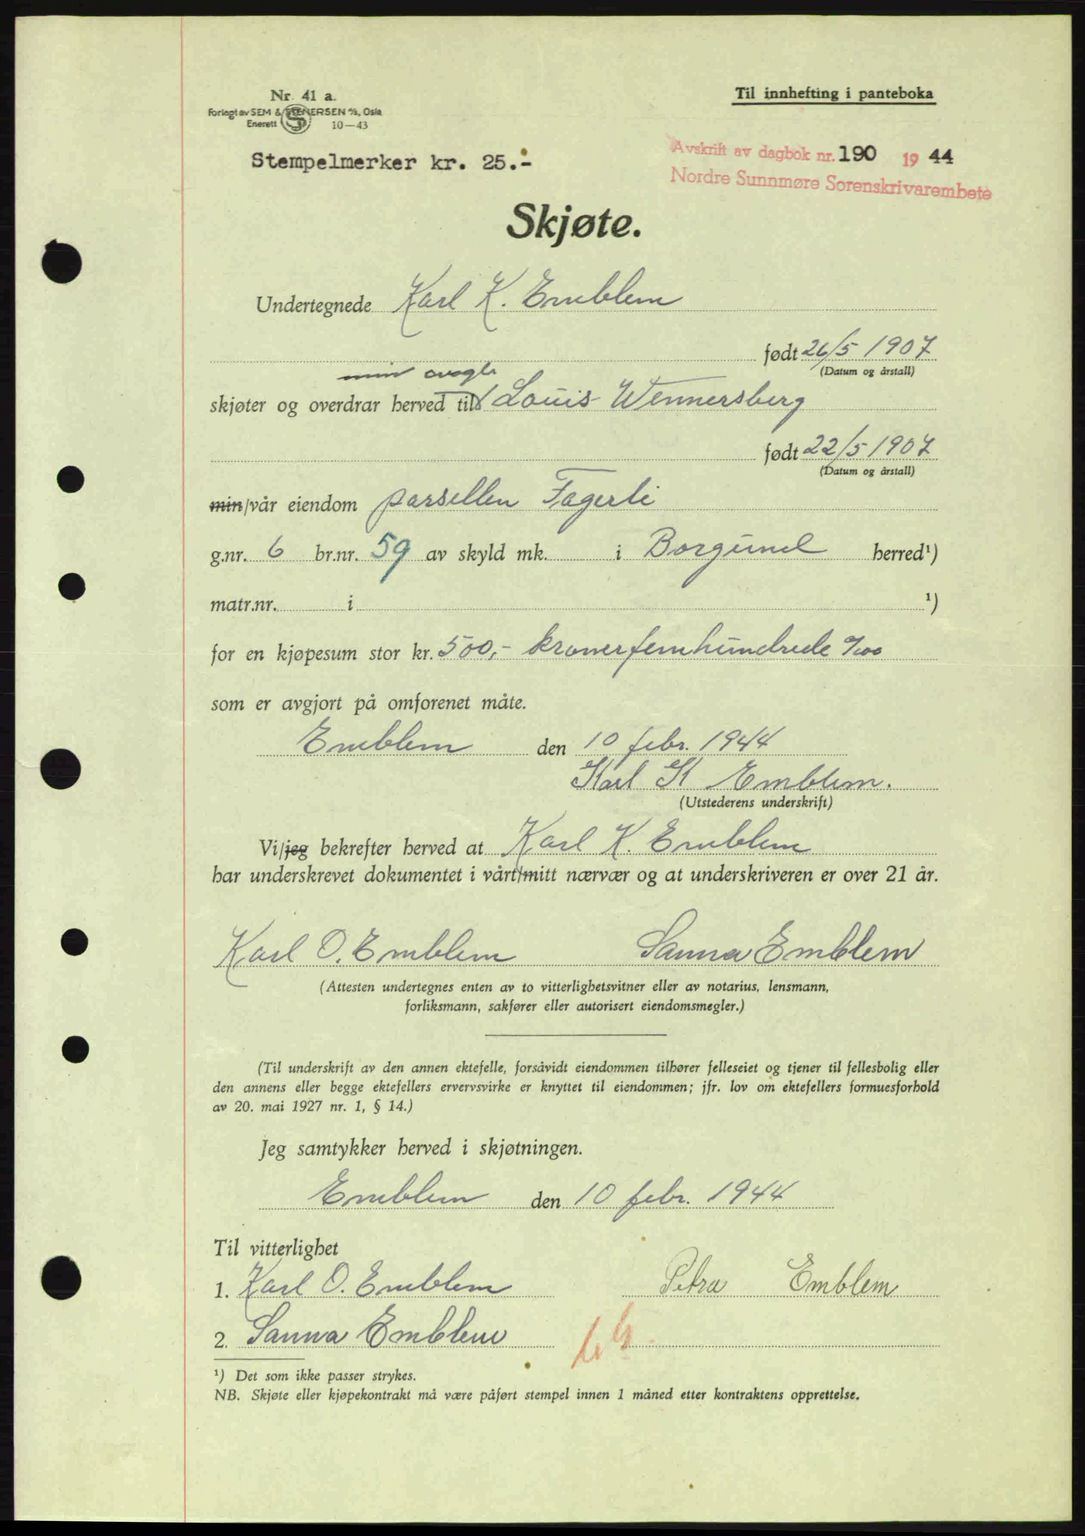 Nr. 41 a.
Forlagt av SEM & STENERSEN A/S, Oslo
Enerett 10—43
Til innhefting i panteboka
Stempelmerker kr. 25.-
Avskrift av dagbok nr. 190 1944
Nordre Sunnmøre Sorenskrivarembete
Skjøte.
Undertegnede Karl K. Emblem
født 26/5 1907
(Datum og årstall)
min svoger
skjøter og overdrar herved til Louis Wennersberg
født 22/5 1907
(Datum og årstall)
min/vår eiendom parsellen Fagerli
g.nr. 6 br.nr. 59 av skyld mk. i Borgund herred¹)
matr.nr. i ¹)
for en kjøpesum stor kr. 500,- kronerfemhundrede 0/100
som er avgjort på omforenet måte.
Emblem den 10 febr. 1944
Karl K Emblem.
(Utstederens underskrift)
Vi/jeg bekrefter herved at Karl K. Emblem
har underskrevet dokumentet i vårt/mitt nærvær og at underskriveren er over 21 år.
Karl O. Emblem Sanna Emblem
(Attesten undertegnes enten av to vitterlighetsvitner eller av notarius, lensmann,
forliksmann, sakfører eller autorisert eiendomsmegler.)
(Til underskrift av den annen ektefelle, forsåvidt eiendommen tilhører felleseiet og tjener til fellesbolig eller
den annens eller begge ektefellers ervervsvirke er knyttet til eiendommen; jfr. lov om ektefellers formuesforhold
av 20. mai 1927 nr. 1, § 14.)
Jeg samtykker herved i skjøtningen.
Emblem den 10 febr. 1944
Til vitterlighet
1. Karl O. Emblem Petra Emblem
2. Sanna Emblem
¹) Det som ikke passer strykes.
NB. Skjøte eller kjøpekontrakt må være påført stempel innen 1 måned etter kontraktens opprettelse.